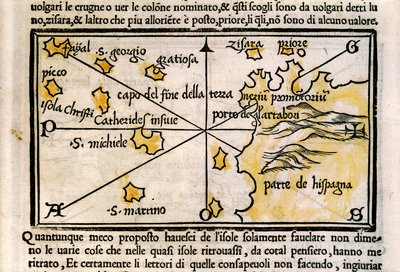 uolgari le crugne o uer le colōne nominato,& q̄sti scogli sono da uolgari detti lu
no, zisara, & laltro che piu alloriēte è posto, priore, li q̄li, nō sono di alcuno ualore.
fayal
s. georgio
gratiosa
zisara
priore
G
picco
isola Christi
capo del fine della terra
neriū promotoriū
porto de lartabori
Catherides insue
P
s. michiele
parte de hispagna
s. martino
A
S
Quantunque meco proposto hauesci de l'isole solamente fauelare non dime
no le uarie cose che nelle quasi isole ritrouassi, da cotal pensiero, hanno me
ritrato, Et certamente li lettori di quelle consapeuoli non facendo, ingiuriar